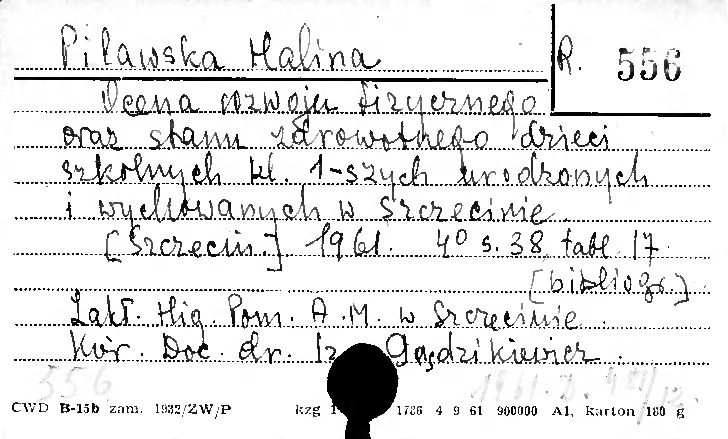 Piławska Halina R. 556
Ocena rozwoju fizycznego
oraz stanu zdrowotnego dzieci
szkolnych kl. 1-szych urodzonych
i wychowanych w Szczecinie.
[Szczecin.] 1961. 4° s. 38 tabl. 17
[bibliogr.]
Zakł. Hig. Pom. A.M. w Szczecinie.
Kier. Doc. dr. Gądzikiewicz.
556 1961.
CWD B-15b zam. 1932/ZW/P kzg 1786 4 9 61 900000 A1, karton 180 g